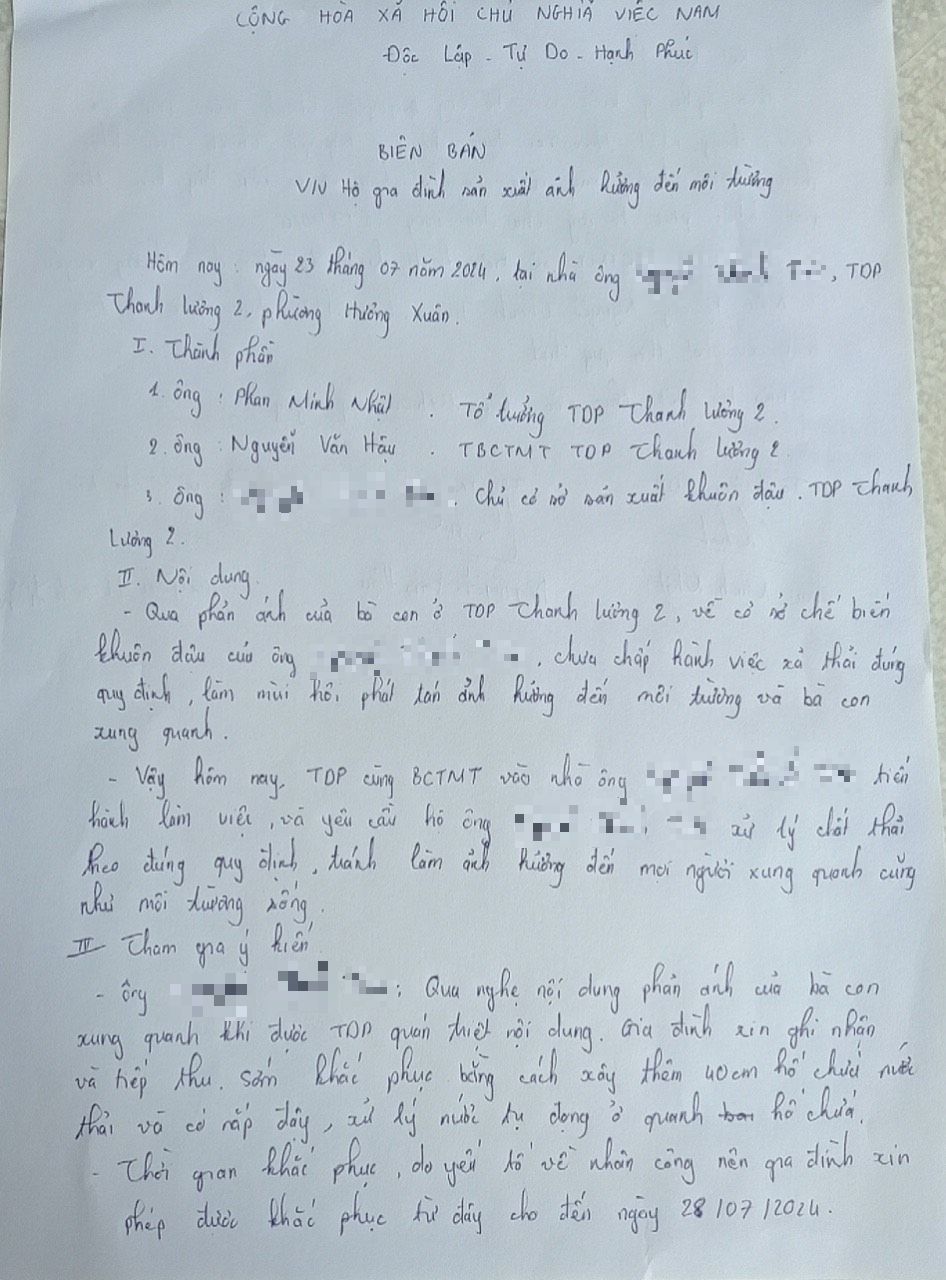 CỘNG HÒA XÃ HỘI CHỦ NGHĨA VIỆC NAM
Độc Lập - Tự Do - Hạnh Phúc
BIÊN BẢN
V/V Hộ gia đình sản xuất ảnh hưởng đến môi trường
Hôm nay: ngày 23 tháng 07 năm 2024. tại nhà ông , TDP
Thanh lương 2, phường Hương Xuân.
I. Thành phần
1. ông: Phan Minh Nhật. Tổ trưởng TDP Thanh Lương 2.
2. ông: Nguyễn Văn Hậu. TBCTMT TDP Thanh lương 2.
3. ông: . Chủ cơ sở sản xuất khuôn đậu. TDP Thanh
Lương 2.
II. Nội dung
- Qua phản ánh của bà con ở TDP Thanh lương 2, về cơ sở chế biến
khuôn đậu của ông , chưa chấp hành việc xả thải đúng
quy định, làm mùi hôi phát tán ảnh hưởng đến môi trường và bà con
xung quanh.
- Vậy hôm nay, TDP cùng BCTMT vào nhà ông tiến
hành làm việc, và yêu cầu hộ ông xử lý chất thải
theo đúng quy định, tránh làm ảnh hưởng đến mọi người xung quanh cũng
như môi trường sống.
III Tham gia ý kiến
- ông : Qua nghe nội dung phản ánh của bà con
xung quanh khi được TDP quán triệt nội dung. Gia đình xin ghi nhận
và tiếp thu. Sớm khắc phục bằng cách xây thêm 40cm hố chứa nước
thải và có nắp đậy, xử lý nước tụ đọng ở quanh hố chứa.
- Thời gian khắc phục, do yếu tố về nhân công nên gia đình xin
phép được khắc phục từ đây cho đến ngày 28/07/2024.